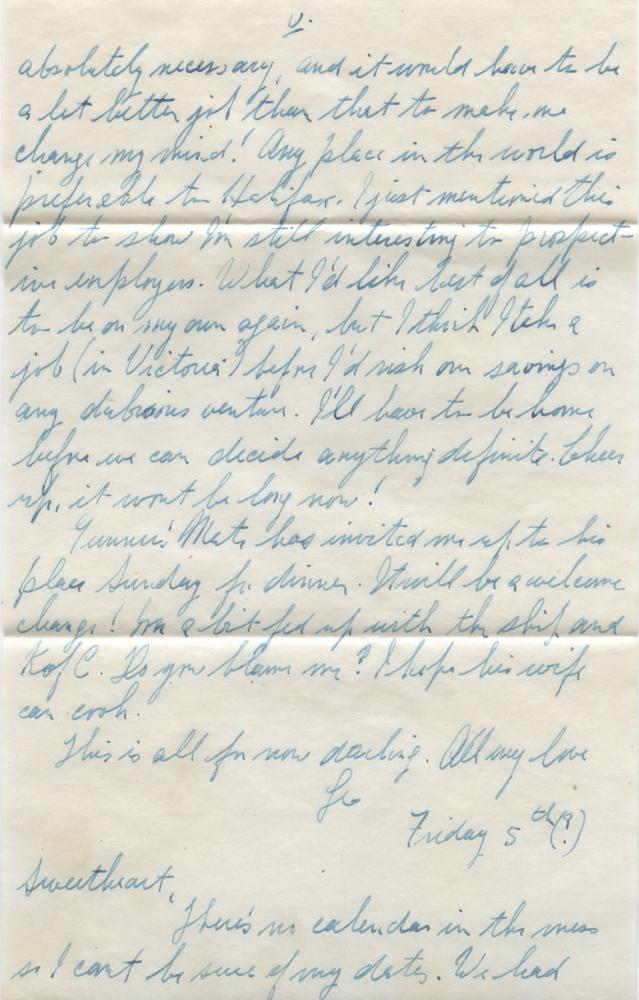 V.
absolutely necessary, and it would have to be
a lot better job than that to make me
change my mind! Any place in the world is
preferable to Halifax. I just mentioned this
job to show I'm still interesting to prospect-
ive employers. What I'd like best of all is
to be on my own again, but I think I take a
job (in Victoria) before I'd risk our savings on
any dubious venture. I'll have to be home
before we can decide anything definite. Cheer
up, it wont be long now!
Gunner's Mate has invited me up to his
place Sunday for dinner. It will be a welcome
change! I'm a bit fed up with the ship and
K of C. Do you blame me? I hope his wife
can cook.
This is all for now darling. All my love
Friday 5th(?)
Sweetheart,
There's no calendar in the mess
so I can't be sure of my dates. We had